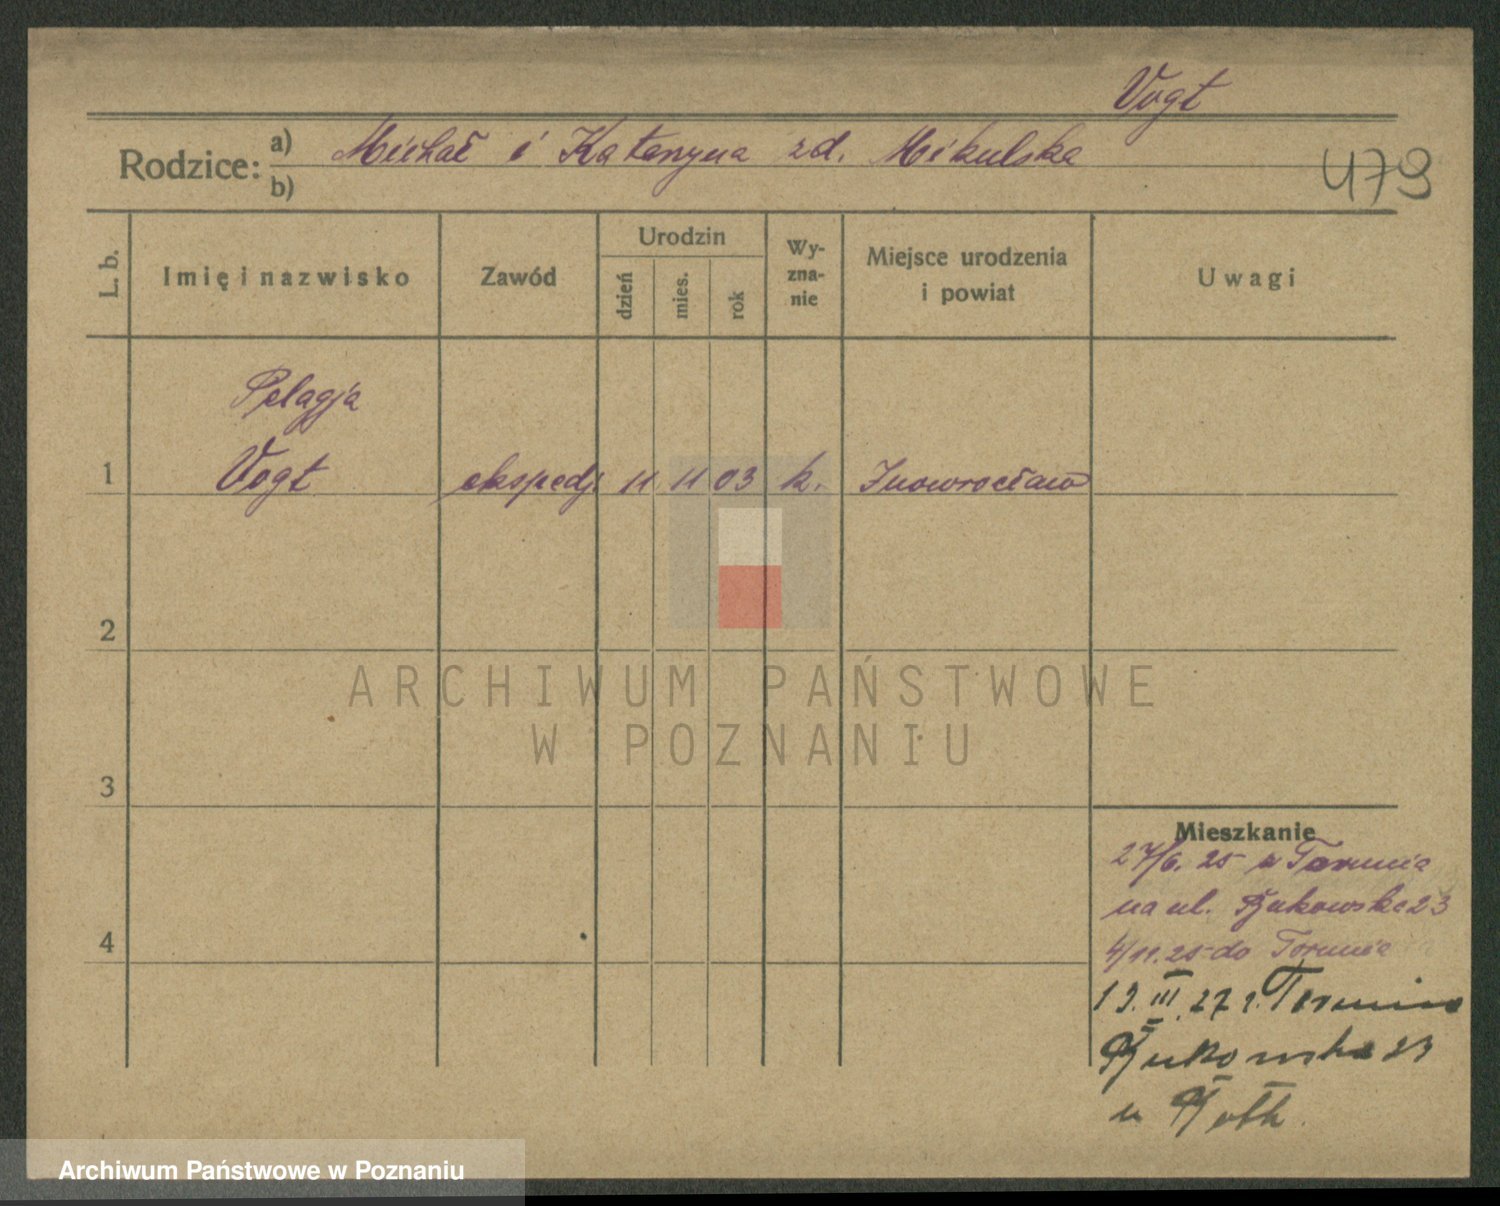 Vogt
Rodzice: a) Michał i Katarzyna zd. Mikulska
b)
479
L. b.
Imię i nazwisko
Zawód
Urodzin
dzień
mies.
rok
Wy-
zna-
nie
Miejsce urodzenia
i powiat
Uwagi
Pelagja
1 Vogt ekspedj. 11 11 03 k. Inowrocław
2
3
4
Mieszkanie
27/6. 25 z Torunia
na ul. Bukowska 23
4/11. 25 do Torunia
19. III. 27 z Torunia
Bukowska 23
u
ARCHIWUM PAŃSTWOWE
W POZNANIU
Archiwum Państwowe w Poznaniu